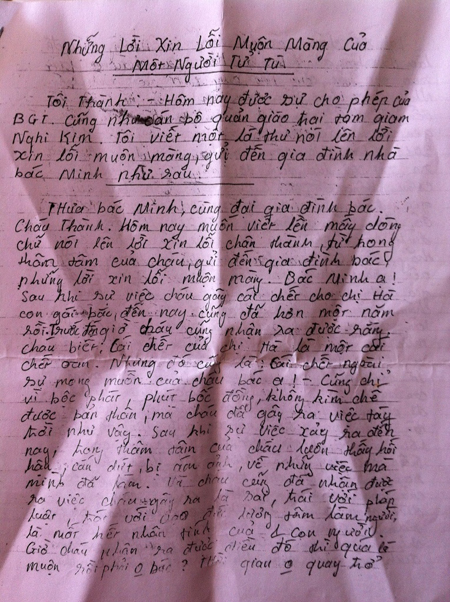 Những Lời Xin Lỗi Muộn Màng Của
Một Người Tử Tù
Tôi Thành: - Hôm nay được sự cho phép của
BGT. Cũng như cán bộ quản giáo hai tạm giam
Nghi Kim. Tôi viết một lá thư nói lên lời
xin lỗi muộn màng, gửi đến gia đình nhà
bác Minh như sau.
Thưa bác Minh, cùng đại gia đình bác.
Cháu Thành. Hôm nay muốn viết lên mấy dòng
chữ nói lên lời xin lỗi chân thành, từ trong
thâm tâm của cháu, gửi đến gia đình bác
những lời xin lỗi muộn màng. Bác Minh ạ!
Sau khi sự việc cháu gây cái chết cho chị Hà
con gái bác, đến nay cũng đã hơn một năm
rồi. Trước giờ cháu cũng nhận ra được rằng.
cháu biết. Cái chết của chị Hà là một cái
chết oan. Nhưng đó cũng là cái chết ngoài
sự mong muốn của cháu bác ạ! - Cũng chỉ
vì bộc phát, phút bốc đồng, không kìm chế
được bản thân, mà cháu đã gây ra việc tày
trời như vậy. Sau khi sự việc xảy ra đến
nay, trong thâm tâm của cháu luôn thấy hối
hận, cắn dứt, bị ám ảnh, về những việc mà
mình đã làm. Và cháu cũng đã nhận được
ra việc cháu gây ra là sai trái với pháp
luật, trái với đạo đức lương tâm làm người,
là mất hết nhân tính của 1 con người.
Giờ cháu nhận ra được điều đó thì quá
muộn rồi phải o bác? Thời gian o quay trở